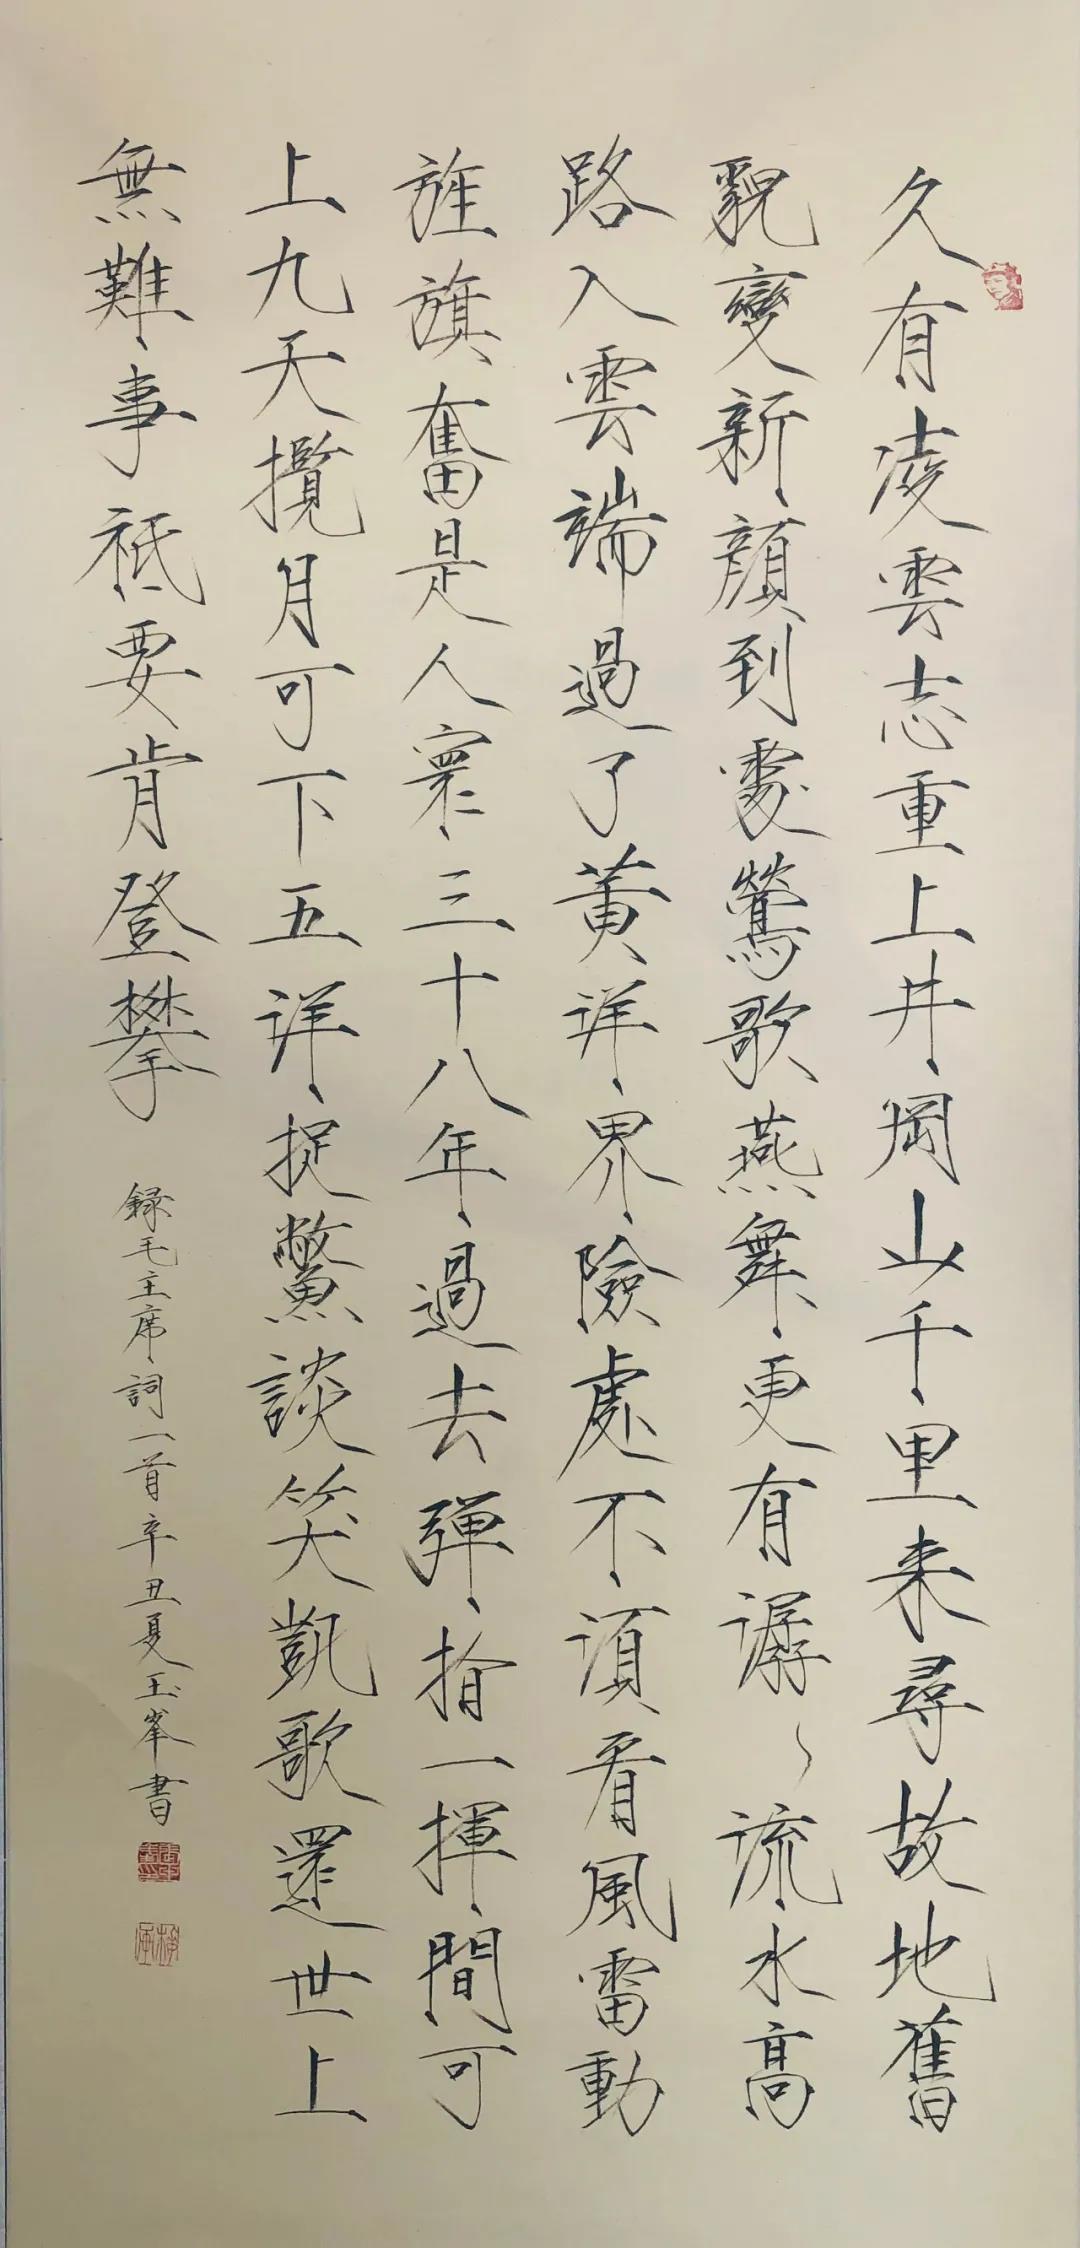 久有凌雲志重上井岡山千里来尋故地舊
貌變新顔到處鶯歌燕舞更有潺〻流水高
路入雲端過了黄洋界險處不須看風雷動
旌旗奮是人寰三十八年過去弹指一揮間可
上九天攬月可下五洋捉鱉談笑凱歌還世上
無難事祗要肯登攀
録毛主席詞一首辛丑夏玉峯書